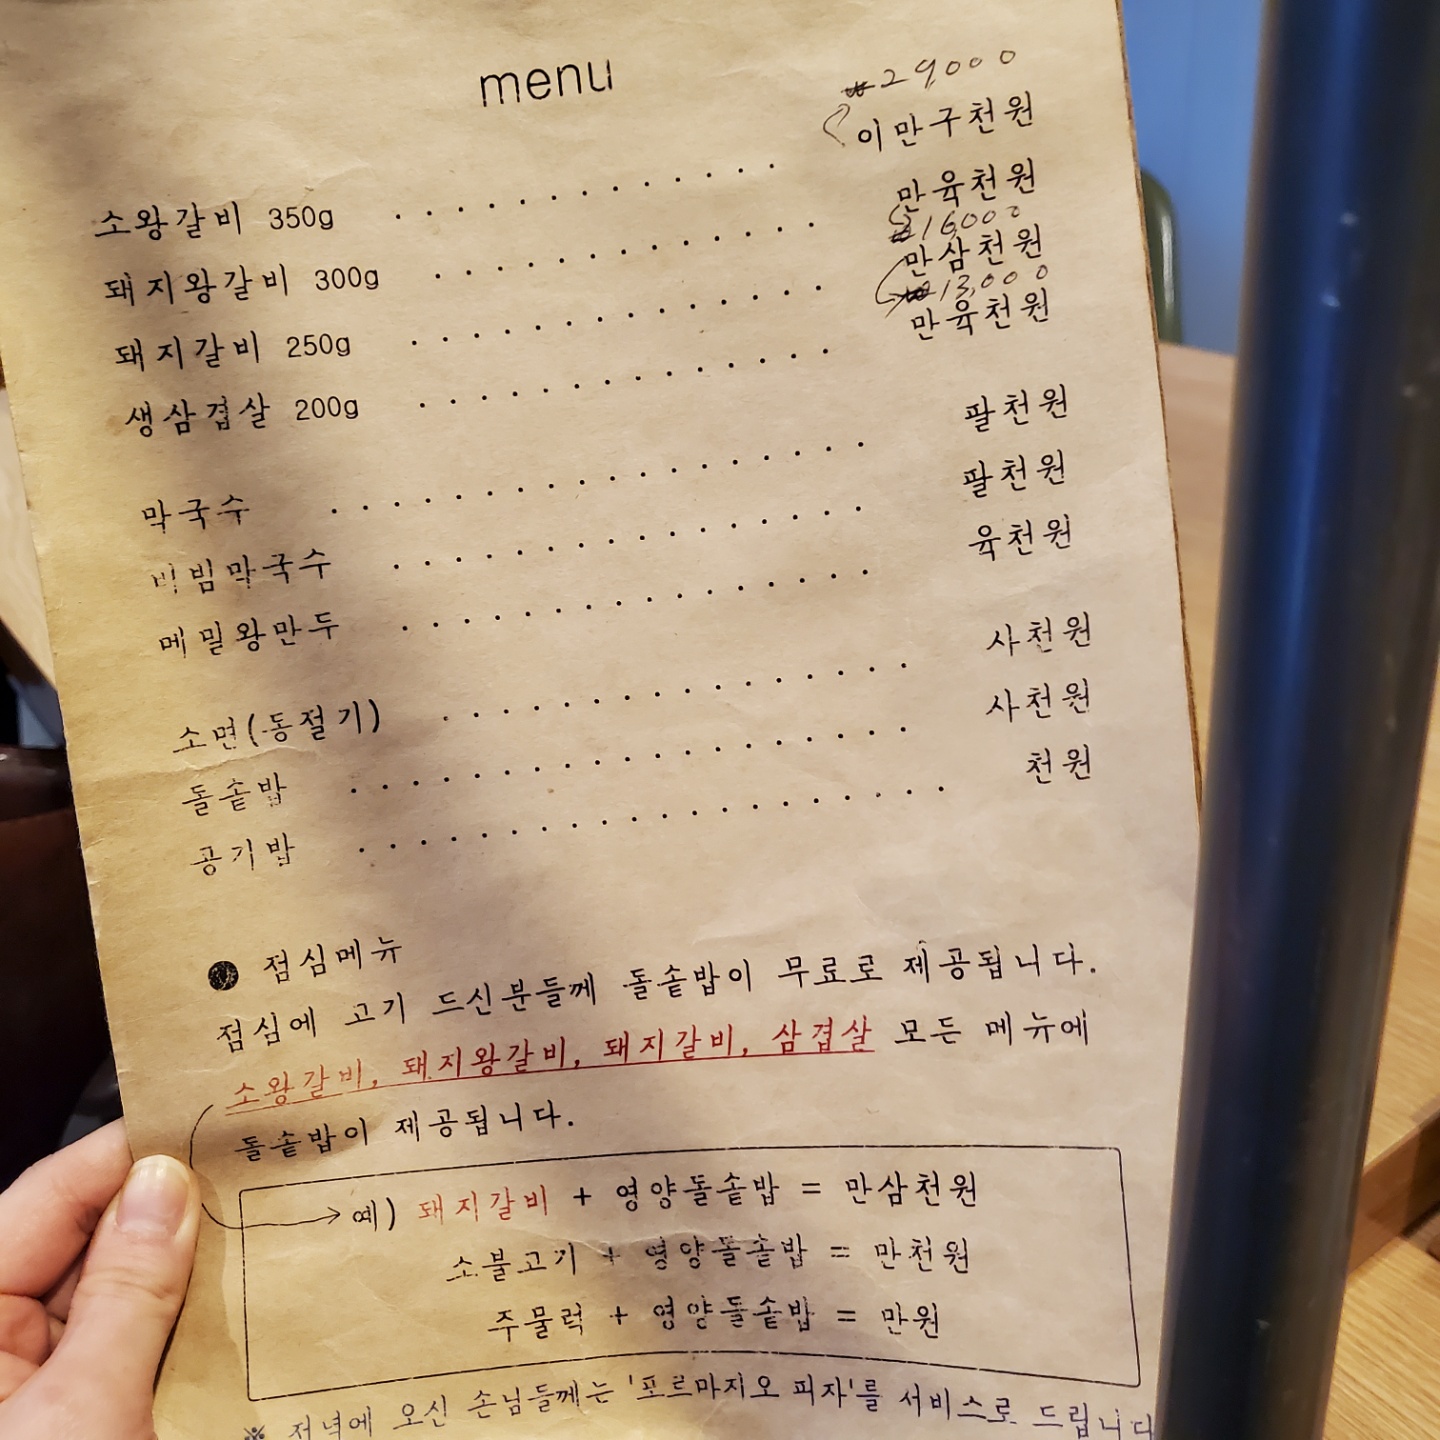 menu
₩29,000
소왕갈비 350g ............. 이만구천원
돼지왕갈비 300g ............. 만육천원
₩16,000
돼지갈비 250g ............... 만삼천원
₩13,000
생삼겹살 200g ............... 만육천원
막국수 .................. 팔천원
비빔막국수 ................ 팔천원
메밀왕만두 ................ 육천원
소면(동절기) ................ 사천원
돌솥밥 ................... 사천원
공기밥 .................... 천원
● 점심메뉴
점심에 고기 드신분들께 돌솥밥이 무료로 제공됩니다.
소왕갈비, 돼지왕갈비, 돼지갈비, 삼겹살 모든 메뉴에
돌솥밥이 제공됩니다.
예) 돼지갈비 + 영양돌솥밥 = 만삼천원
소불고기 + 영양돌솥밥 = 만천원
주물럭 + 영양돌솥밥 = 만원
※ 저녁에 오신 손님들께는 '포르마지오 피자'를 서비스로 드립니다